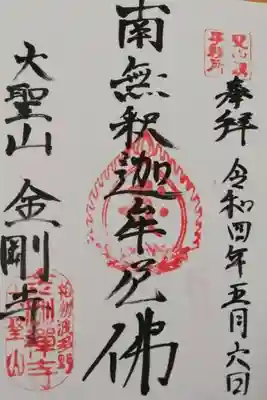 奉拝 令和四年五月六日
南無釈迦牟尼佛
大聖山 金剛寺